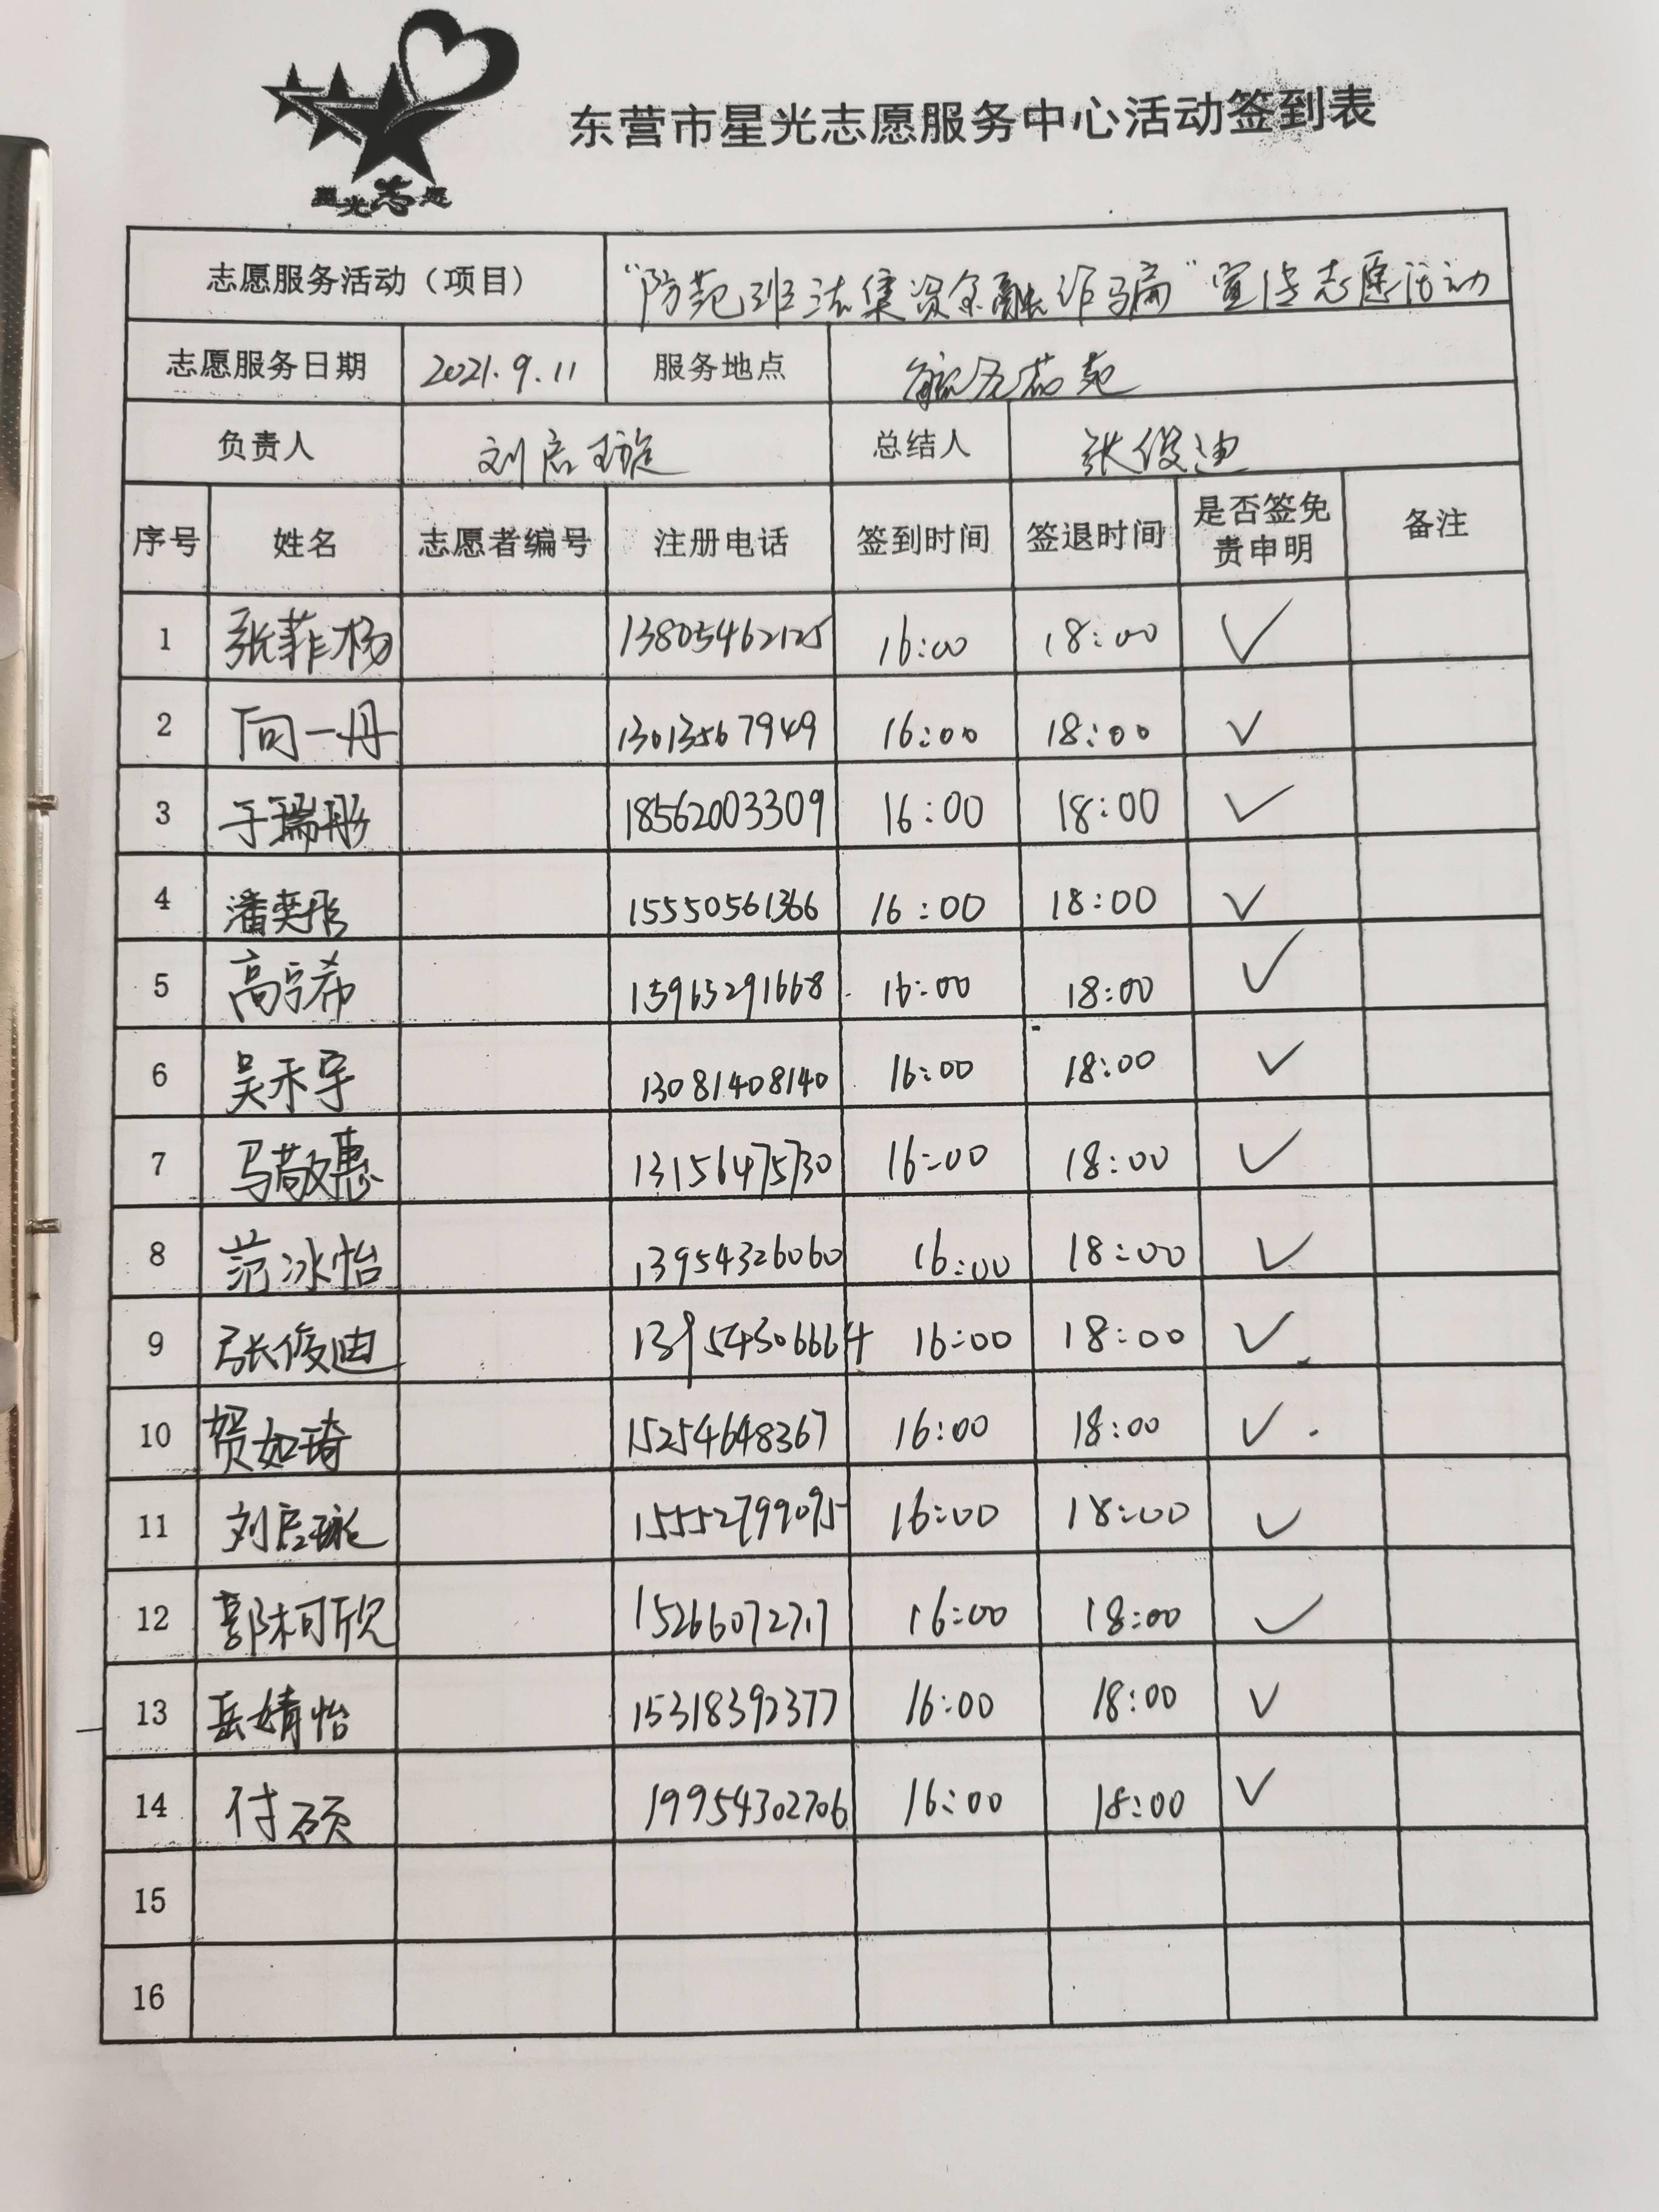 星光志愿
东营市星光志愿服务中心活动签到表
志愿服务活动（项目） “防范非法集资金融诈骗”宣传志愿活动
志愿服务日期 2021.9.11 服务地点
负责人 刘启璇 总结人 张俊迪
序号 姓名 志愿者编号 注册电话 签到时间 签退时间 是否签免责申明 备注
1 张菲杨 13805462125 16:00 18:00 ✓
2 闫一丹 13013567949 16:00 18:00 ✓
3 于瑞彤 18562003309 16:00 18:00 ✓
4 潘奕彤 15550561366 16:00 18:00 ✓
5 高宁希 15965291668 16:00 18:00 ✓
6 吴禾宇 13081408140 16:00 18:00 ✓
7 马敬惠 13156475730 16:00 18:00 ✓
8 范冰怡 13954326060 16:00 18:00 ✓
9 张俊迪 13954306664 16:00 18:00 ✓
10 贺如琦 15254648367 16:00 18:00 ✓
11 刘启璇 15552799095 16:00 18:00 ✓
12 郭林可欣 15266072717 16:00 18:00 ✓
13 岳婧怡 15318392377 16:00 18:00 ✓
14 付硕 19954302706 16:00 18:00 ✓
15
16